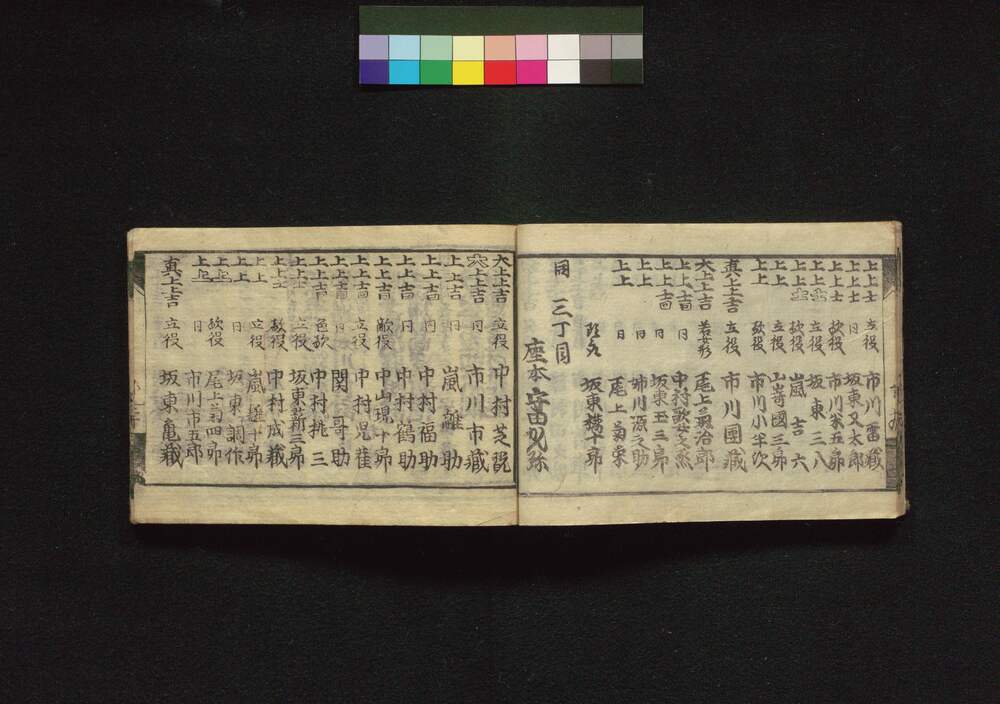 上上士 立役 市川雷蔵
上上士 日 坂東又太郎
上上士 敵役 市川米五郎
上上 立役 坂東三八
上上 敵役 嵐吉六
上上 立役 山嵜國三郎
上上 敵役 市川小半次
真上上吉 立役 市川團蔵
大上上吉 若女形 尾上菊治郎
上上吉 日 中村歌女之丞
上上吉 日 坂東玉三郎
上上 日 姉川源之助
上上 日 尾上菊栄
坂東橘十郎
同 三丁目
座本 守田勘弥
大上上吉 立役 中村芝翫
上上吉 日 市川市蔵
上上吉 日 嵐雛助
上上吉 日 中村福助
上上吉 日 中村鶴助
上上吉 敵役 中山現十郎
上上吉 立役 中村児雀
上上吉 日 関哥助
上上吉 色敵 中村桃三
上上 立役 坂東薪三郎
上上 敵役 中村成蔵
上上 立役 嵐雛十郎
上上 日 坂東調作
上上 敵役 尾上菊四郎
上上 日 市川市五郎
真上上吉 立役 坂東亀蔵